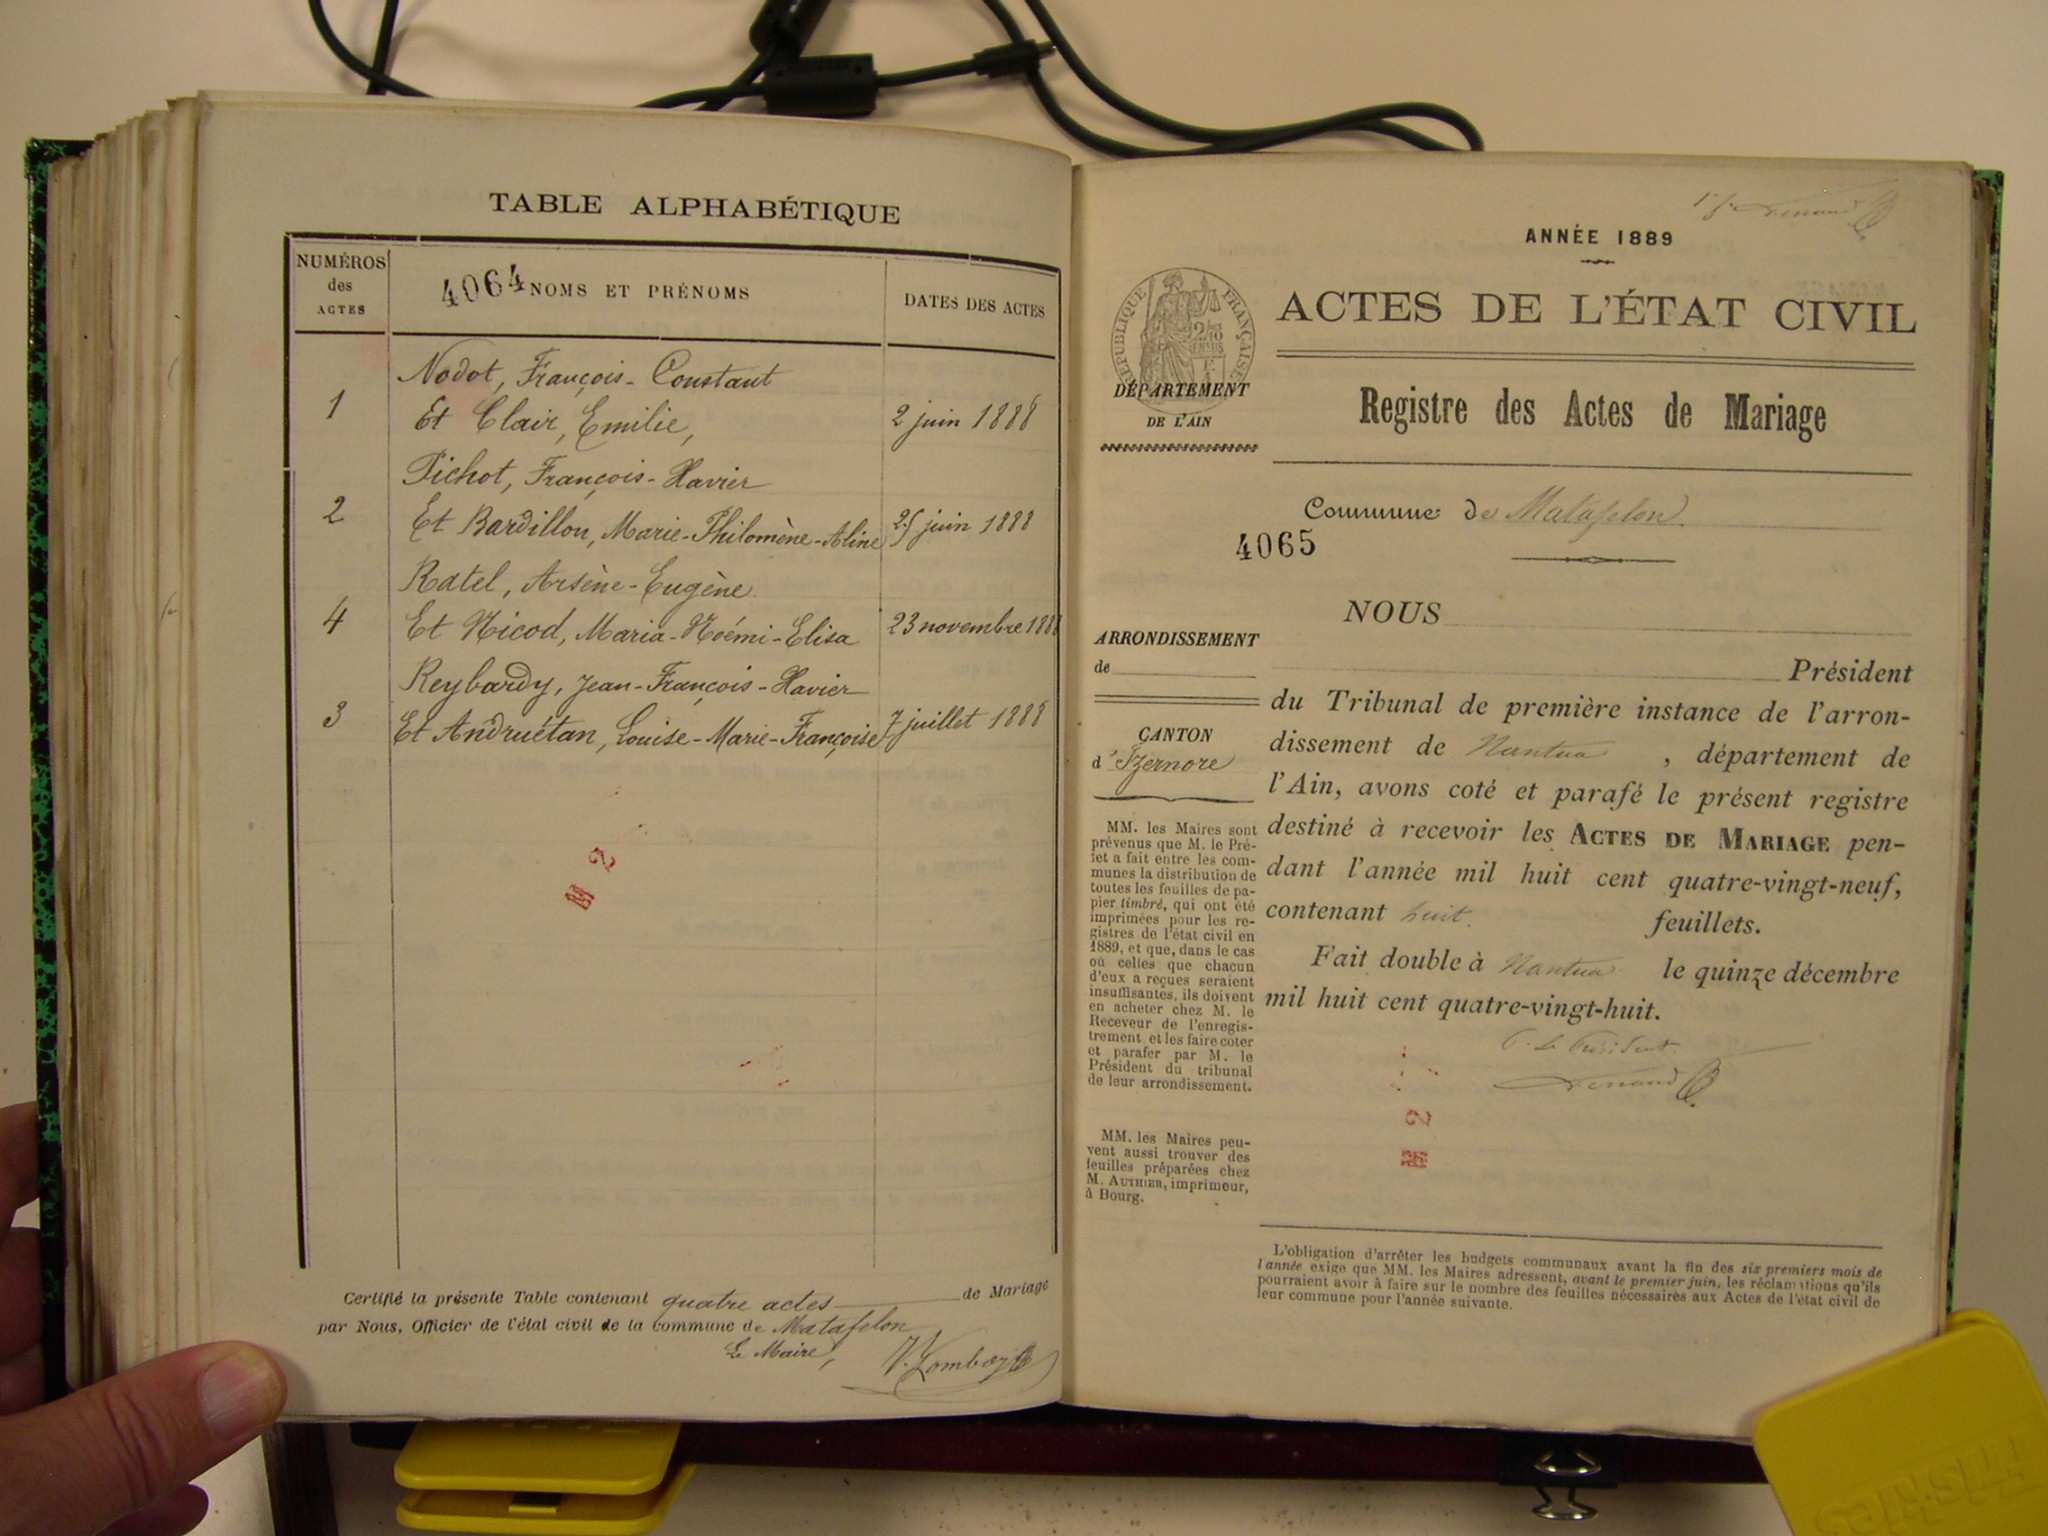 TABLE ALPHABÉTIQUE
NUMÉROS des ACTES
4064 NOMS ET PRÉNOMS
DATES DES ACTES
Nodot, François-Constant
1 Et Clair, Emilie, 2 juin 1888
Pichot, François-Xavier
2 Et Bardillon, Marie-Philomène-Aline 25 juin 1888
Ratel, Arsène-Eugène
4 Et Nicod, Maria-Noémi-Elisa 23 novembre 1888
Reybardy, Jean-François-Xavier
3 Et Andruétan, Louise-Marie-Françoise 7 juillet 1888
M 2
Certifié la présente Table contenant quatre actes de Mariage
par Nous, Officier de l'état civil de la commune de Matafelon
Le Maire,
ANNÉE 1889
RÉPUBLIQUE FRANÇAISE
ACTES DE L'ÉTAT CIVIL
DÉPARTEMENT
DE L'AIN
Registre des Actes de Mariage
Commune de Matafelon
4065
NOUS
ARRONDISSEMENT
de
Président
du Tribunal de première instance de l'arron-
dissement de Nantua, département de
l'Ain, avons coté et parafé le présent registre
destiné à recevoir les ACTES DE MARIAGE pen-
dant l'année mil huit cent quatre-vingt-neuf,
contenant huit feuillets.
Fait double à Nantua le quinze décembre
mil huit cent quatre-vingt-huit.
P. Le Président
CANTON
d'Izernore
MM. les Maires sont
prévenus que M. le Pré-
fet a fait entre les com-
munes la distribution de
toutes les feuilles de pa-
pier timbré, qui ont été
imprimées pour les re-
gistres de l'état civil en
1889, et que, dans le cas
où celles que chacun
d'eux a reçues seraient
insuffisantes, ils doivent
en acheter chez M. le
Receveur de l'enregis-
trement et les faire coter
et parafer par M. le
Président du tribunal
de leur arrondissement.
MM. les Maires peu-
vent aussi trouver des
feuilles préparées chez
M. AUTHIER, imprimeur,
à Bourg.
2
M
L'obligation d'arrêter les budgets communaux avant la fin des six premiers mois de
l'année exige que MM. les Maires adressent, avant le premier juin, les réclamations qu'ils
pourraient avoir à faire sur le nombre des feuilles nécessaires aux Actes de l'état civil de
leur commune pour l'année suivante.